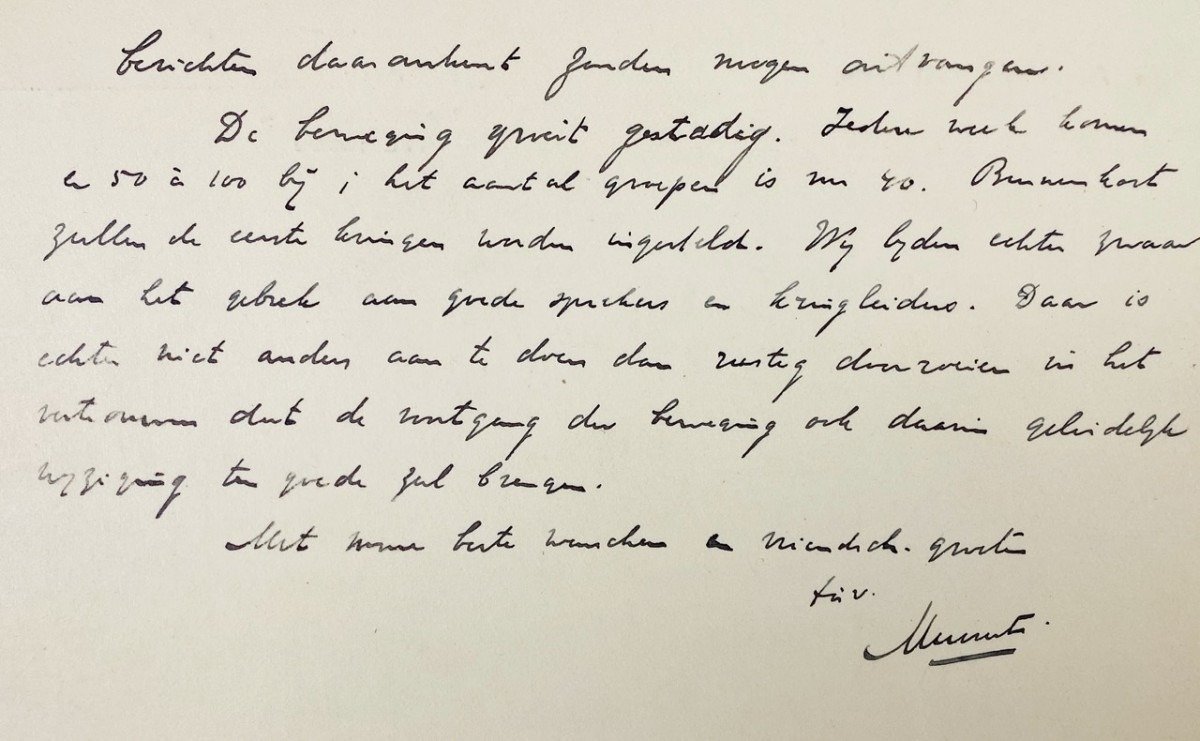 berichten daaromtrent zouden mogen ontvangen.
De beweging groeit gestadig. Iedere week komen
er 50 à 100 bij; het aantal groepen is nu 40. Binnenkort
zullen de eerste kringen worden ingesteld. Wij lijden echter zwaar
aan het gebrek aan goede sprekers en kringleiders. Daar is
echter niet anders aan te doen dan rustig door roeien in het
vertrouwen dat de voortgang der beweging ook daarin geleidelijk
wijziging ten goede zal brengen.
Met mijne beste wenschen en vriendsch. groeten
t.à v.
Mussert.